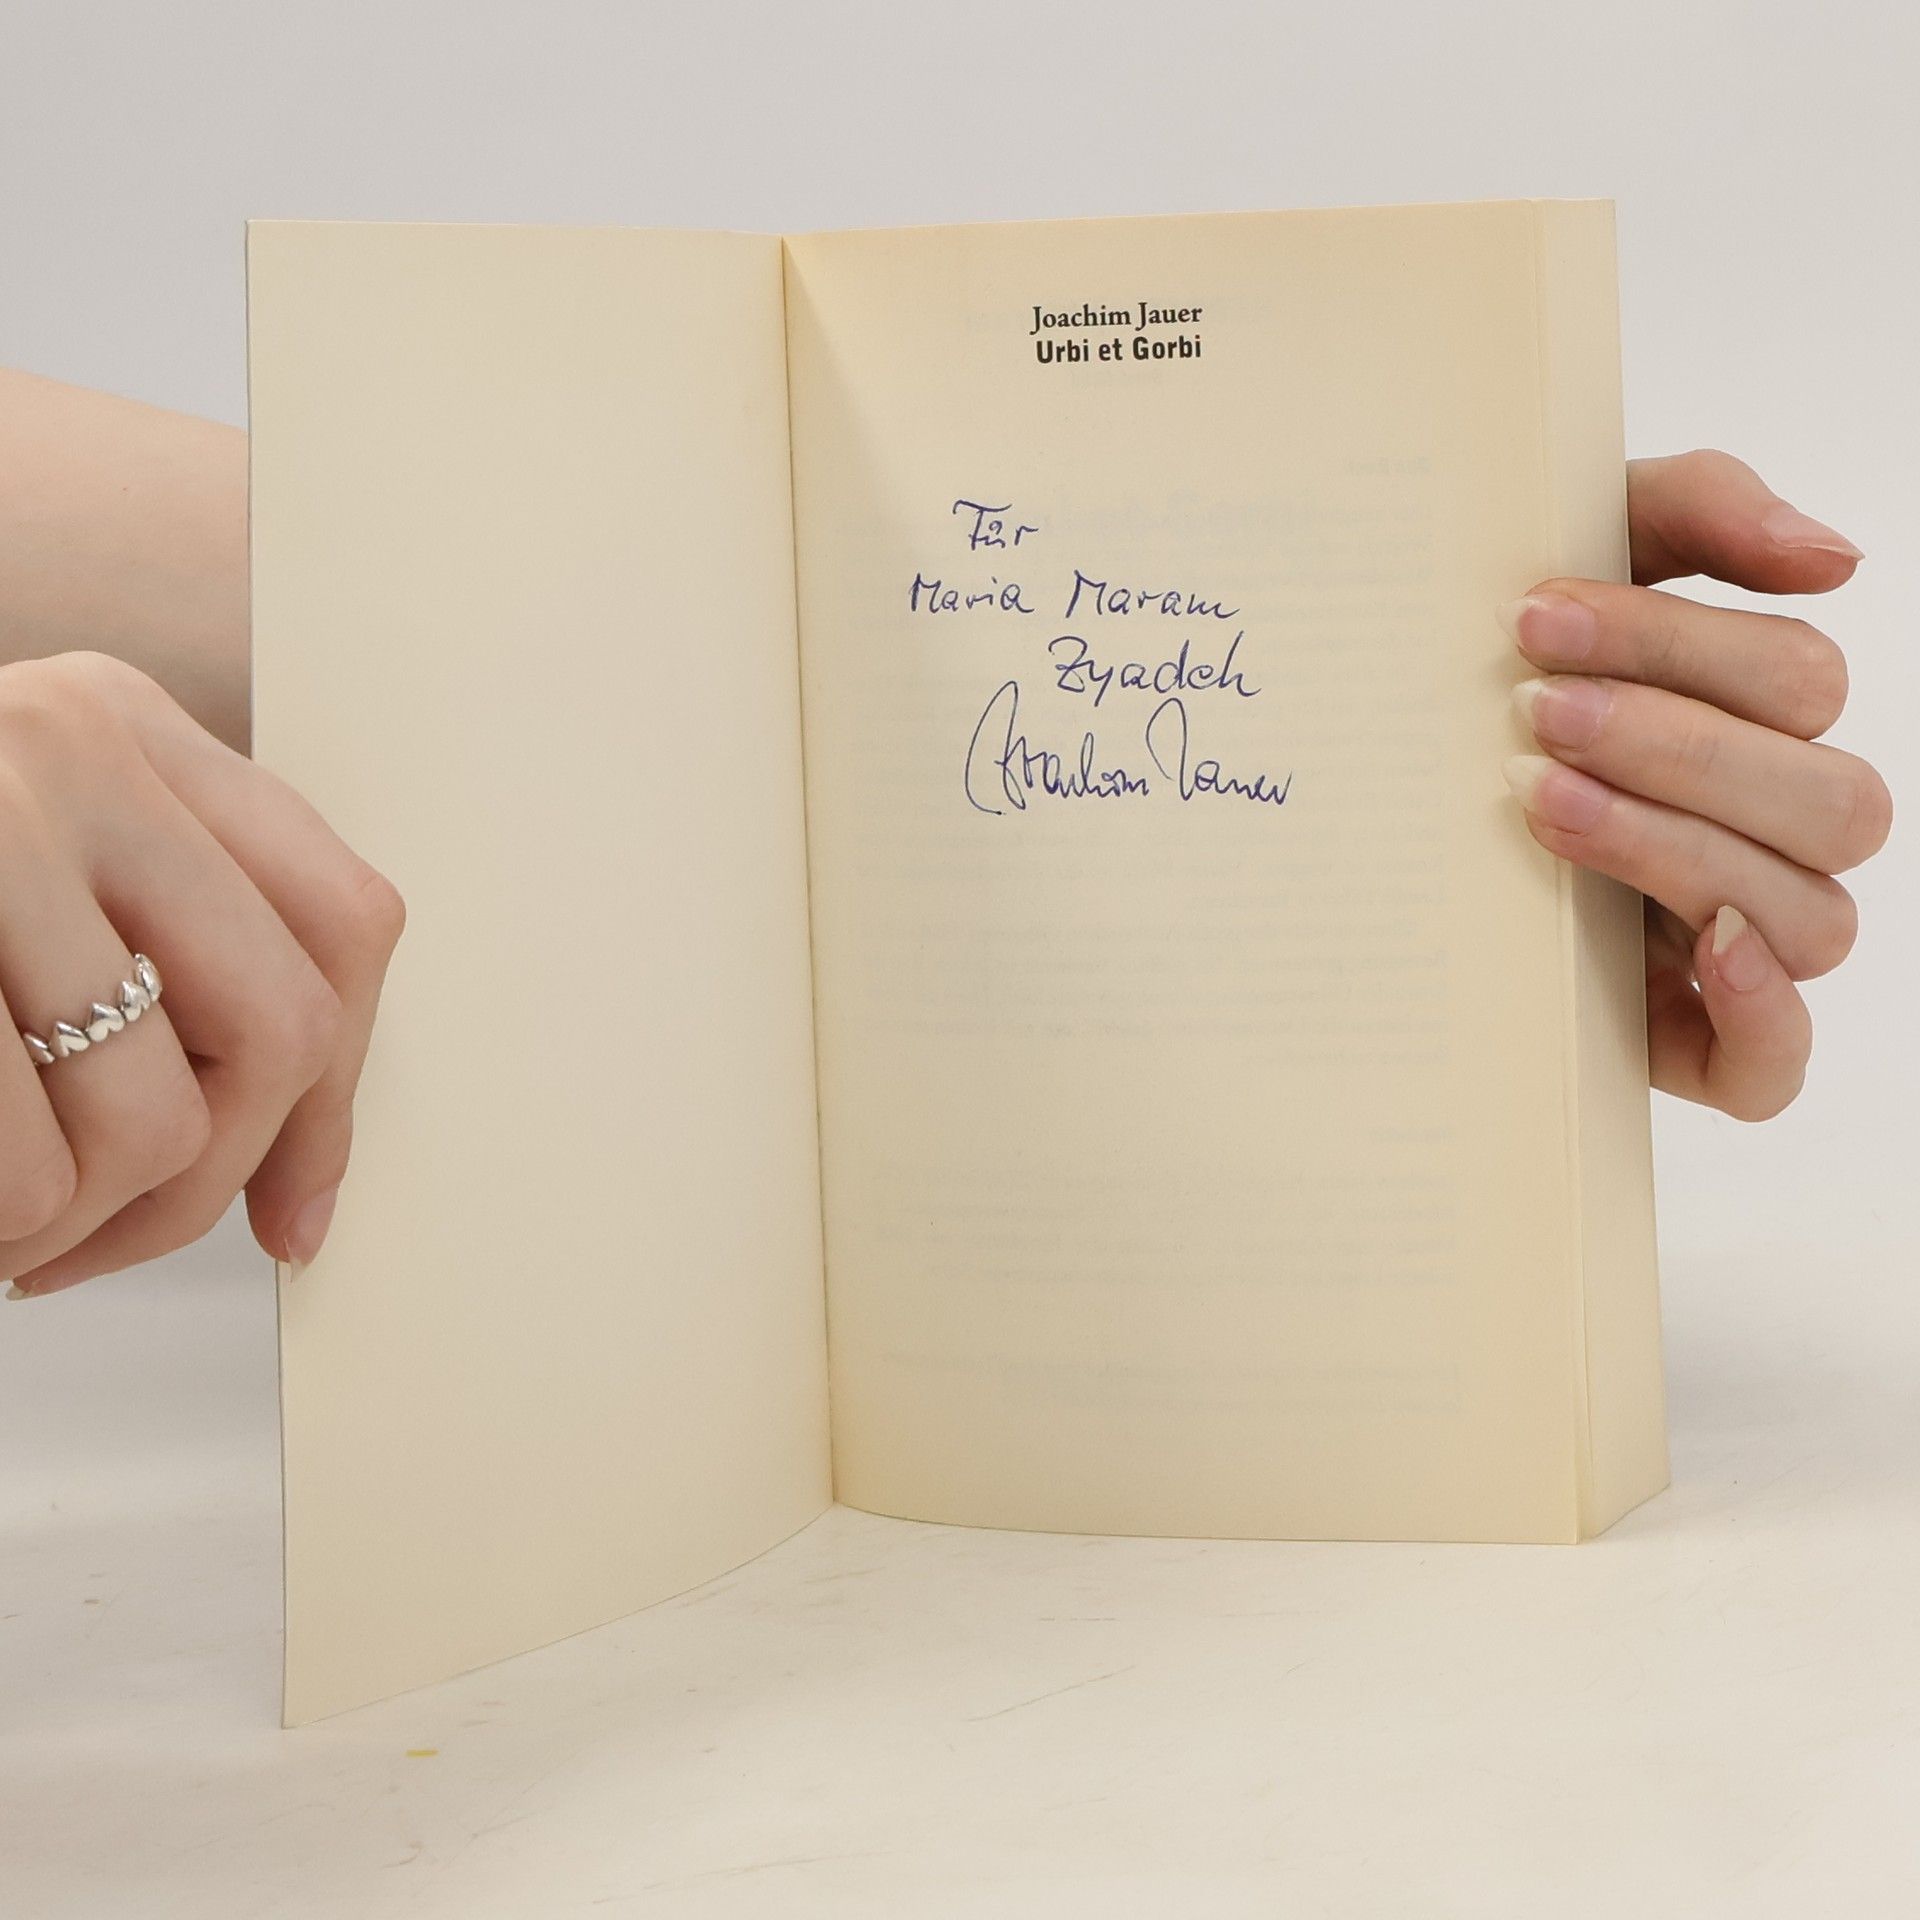 Joachim Jauer
Urbi et Gorbi
Für
Maria Maram
Zyadeh
Joachim Jauer